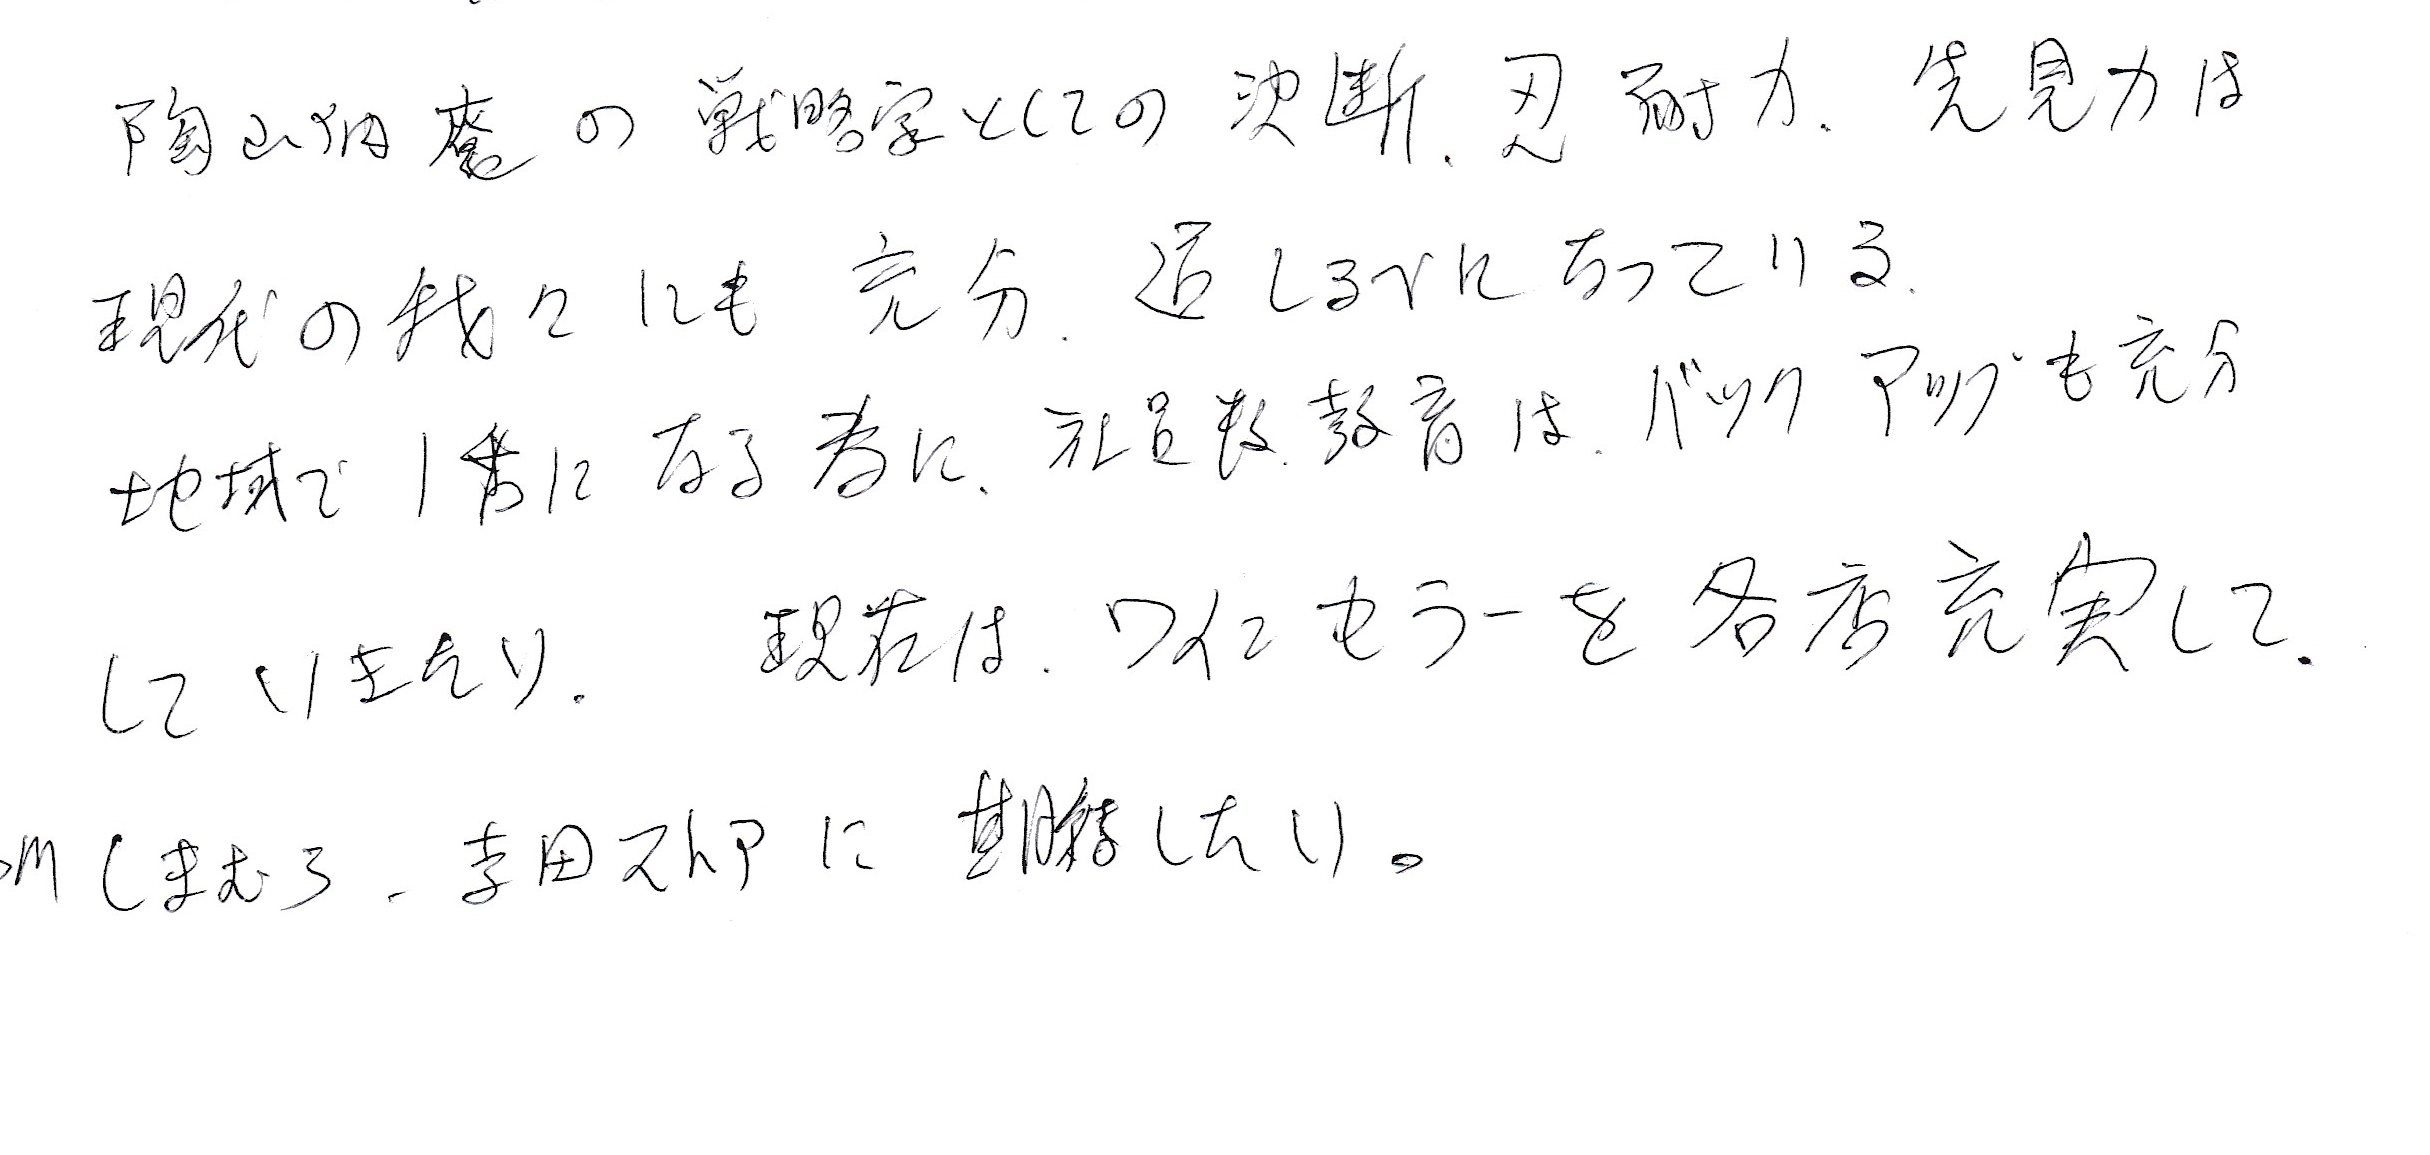 陶山訥庵の戦略家としての決断、忍耐力、先見力は
現代の我々にも充分、道しるべになっている.
地域で1番になる為に、社員教育は、バックアップも充分
していきたい. 現在は、ワインセラーを各店充実して.
しまむら、幸田ストアに期待したい。